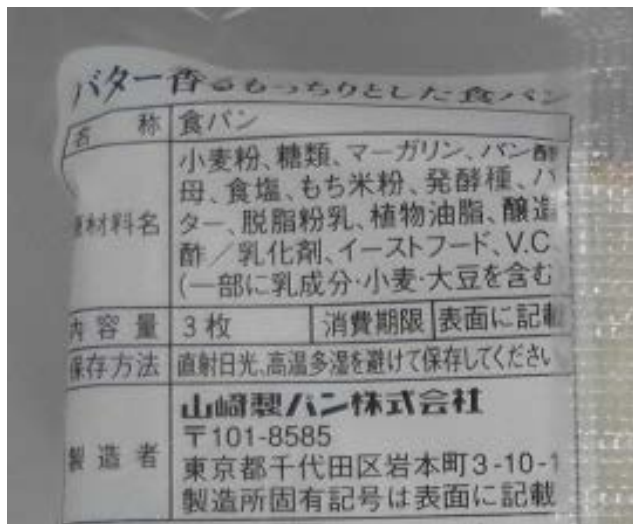 バター香るもっちりとした食パン
名 称 食パン
小麦粉、糖類、マーガリン、パン酵
母、食塩、もち米粉、発酵種、バ
原材料名 ター、脱脂粉乳、植物油脂、醸造
酢/乳化剤、イーストフード、V.C
(一部に乳成分・小麦・大豆を含む
内容量 3枚 消費期限 表面に記載
保存方法 直射日光、高温多湿を避けて保存してください
山崎製パン株式会社
〒101-8585
製造者 東京都千代田区岩本町3-10-1
製造所固有記号は表面に記載